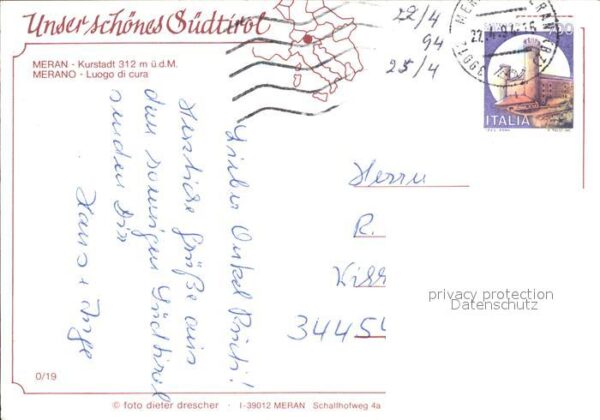 Unser schönes Südtirol
MERAN - Kurstadt 312 m ü.d.M.
MERANO - Luogo di cura
22/4
94
25/4
700
ITALIA
Lieber Onkel
Herzliche Grüße aus
dem sonnigen Südtirol
senden Dir
Hans + Inge
Herrn
R.
34454
privacy protection
Datenschutz
0/19
© foto dieter drescher · I-39012 MERAN Schallhofweg 4a